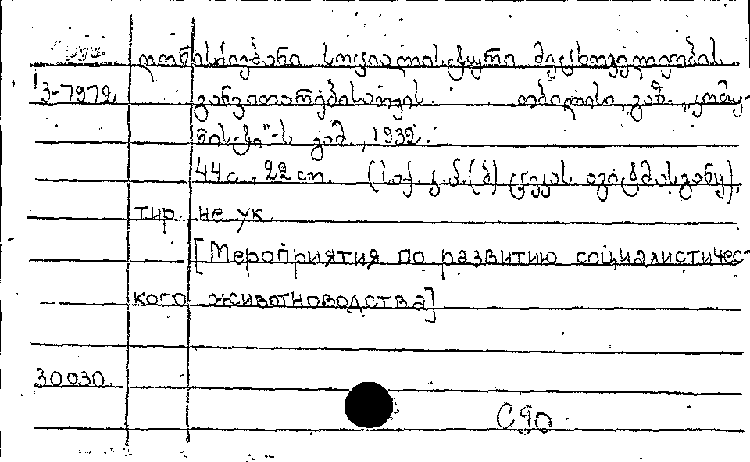 ღონისძიებანი სოციალისტური მეცხოველეობის
3-7972 განვითარებისათვის. თბილისი, გაზ. „კომუ-
ნისტი"-ს გამ., 1932.
44 с. 22 cm. (საქ. კ.პ.(ბ) ცეკას აგიტმასგანყ),
тир. не ук.
[Мероприятия по развитию социалистичес-
кого животноводства]
30030
С90